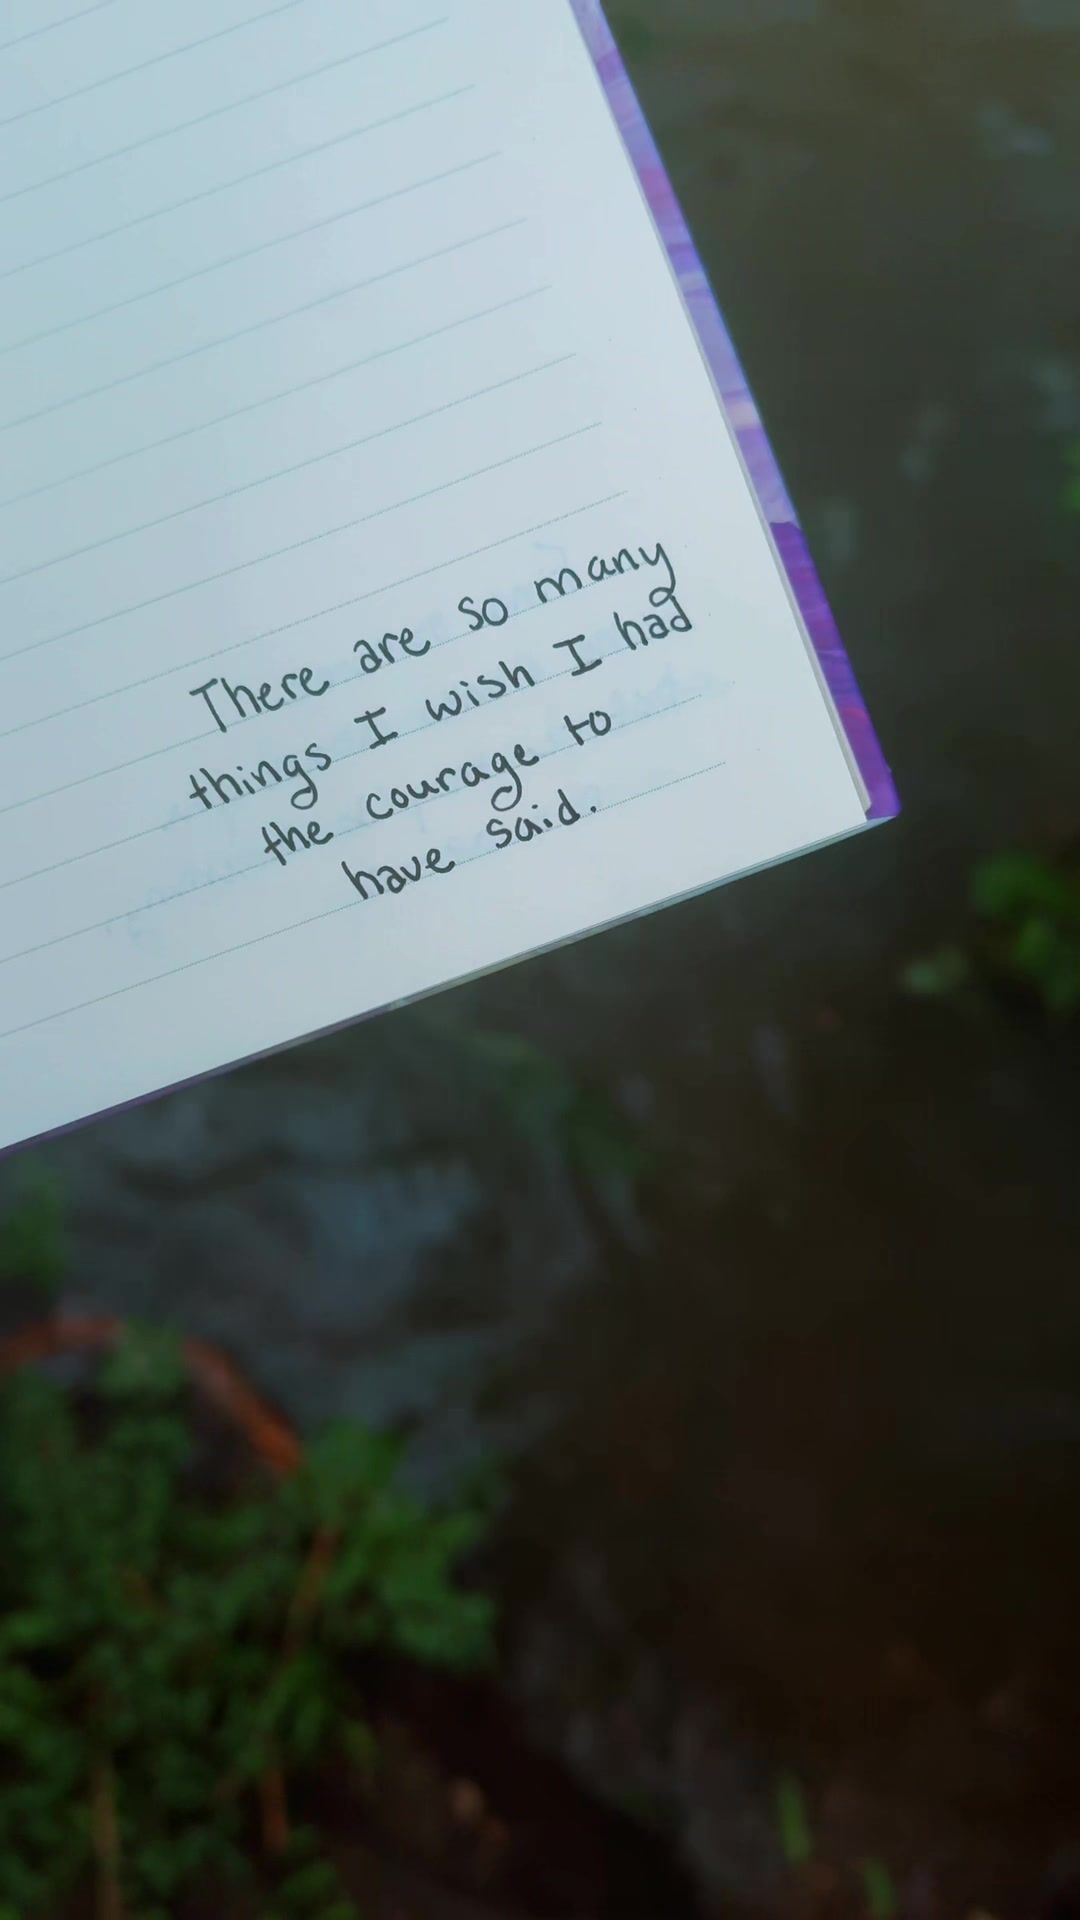 There are so many
things I wish I had
the courage to
have said.